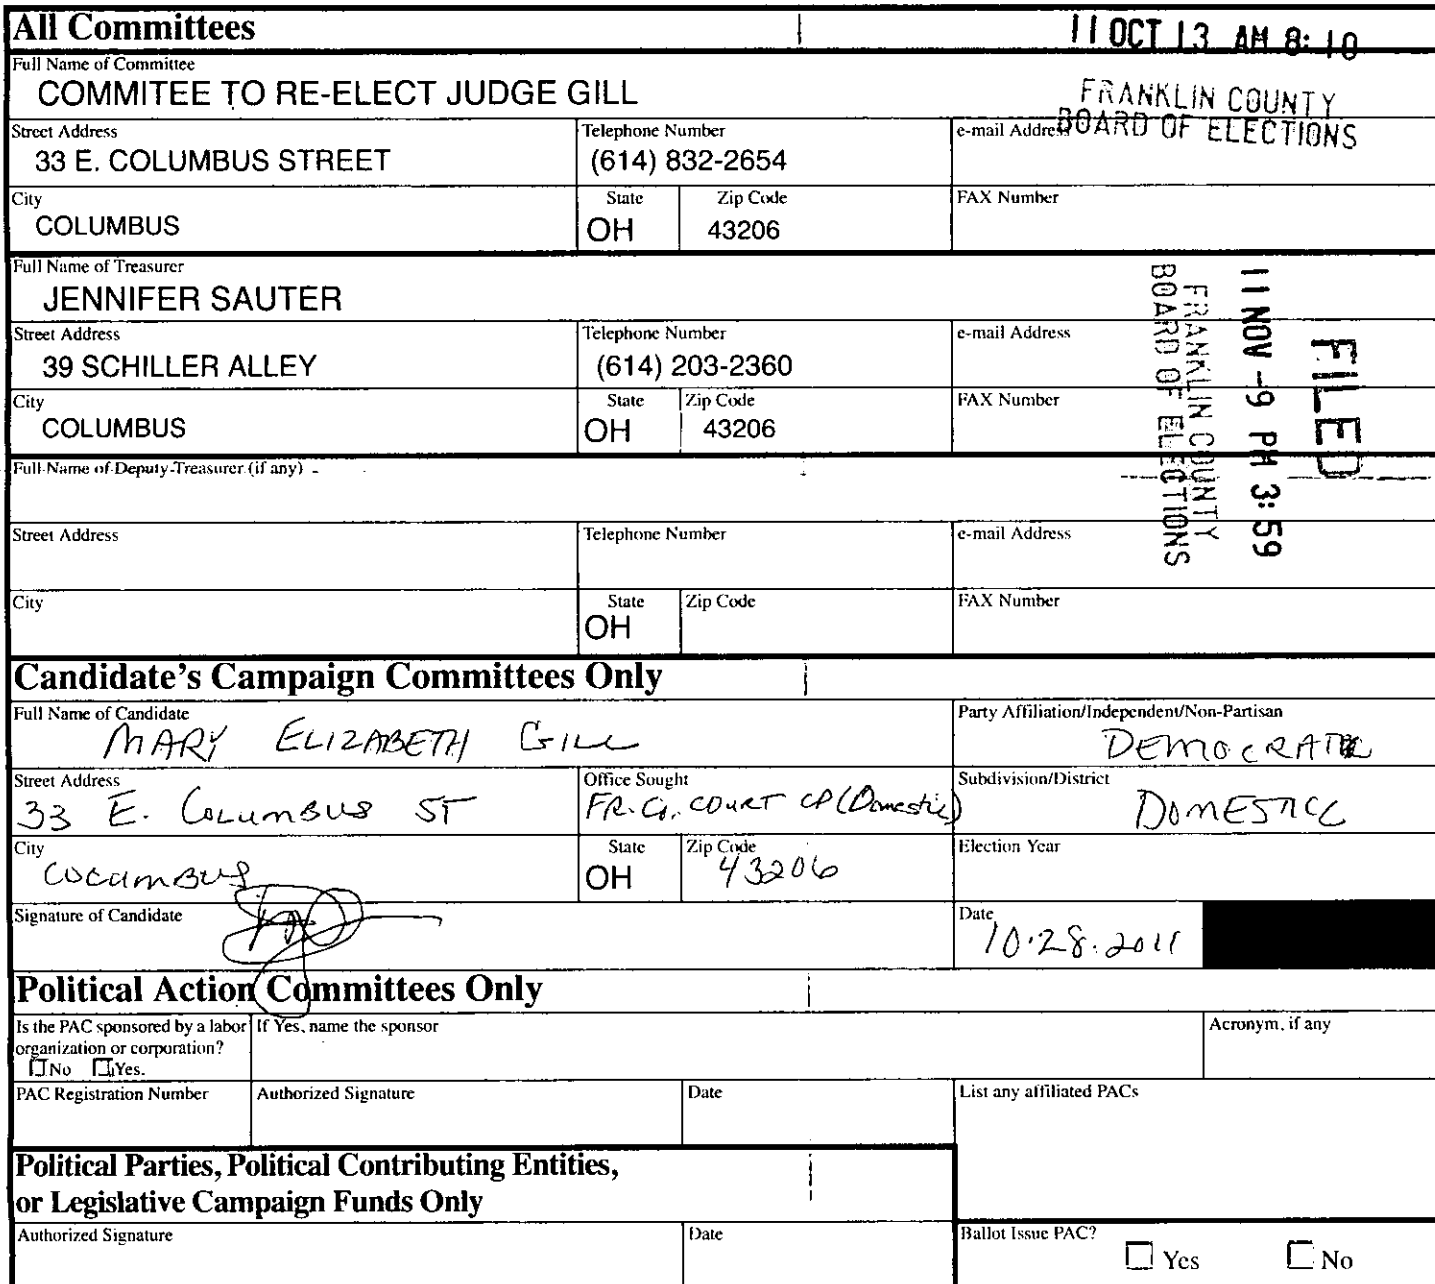 All Committees
11 OCT 13 AM 8:10
Full Name of Committee
COMMITEE TO RE-ELECT JUDGE GILL
FRANKLIN COUNTY
BOARD OF ELECTIONS
Street Address
33 E. COLUMBUS STREET
Telephone Number
(614) 832-2654
e-mail Addre
City
COLUMBUS
State
OH
Zip Code
43206
FAX Number
Full Name of Treasurer
JENNIFER SAUTER
FILED
11 NOV -9 PM 3:59
FRANKLIN COUNTY
BOARD OF ELECTIONS
Street Address
39 SCHILLER ALLEY
Telephone Number
(614) 203-2360
e-mail Address
City
COLUMBUS
State
OH
Zip Code
43206
FAX Number
Full Name of Deputy Treasurer (if any)
Street Address
Telephone Number
e-mail Address
City
State
OH
Zip Code
FAX Number
Candidate's Campaign Committees Only
Full Name of Candidate
MARY ELIZABETH GILL
Party Affiliation/Independent/Non-Partisan
DEMOCRATIC
Street Address
33 E. COLUMBUS ST
Office Sought
FR. Co. COURT CP (Domestic)
Subdivision/District
DOMESTIC
City
COLUMBUS
State
OH
Zip Code
43206
Election Year
Signature of Candidate
Date
10.28.2011
Political Action Committees Only
Is the PAC sponsored by a labor
organization or corporation?
No Yes.
If Yes, name the sponsor
Acronym, if any
PAC Registration Number
Authorized Signature
Date
List any affiliated PACs
Political Parties, Political Contributing Entities,
or Legislative Campaign Funds Only
Authorized Signature
Date
Ballot Issue PAC?
Yes No